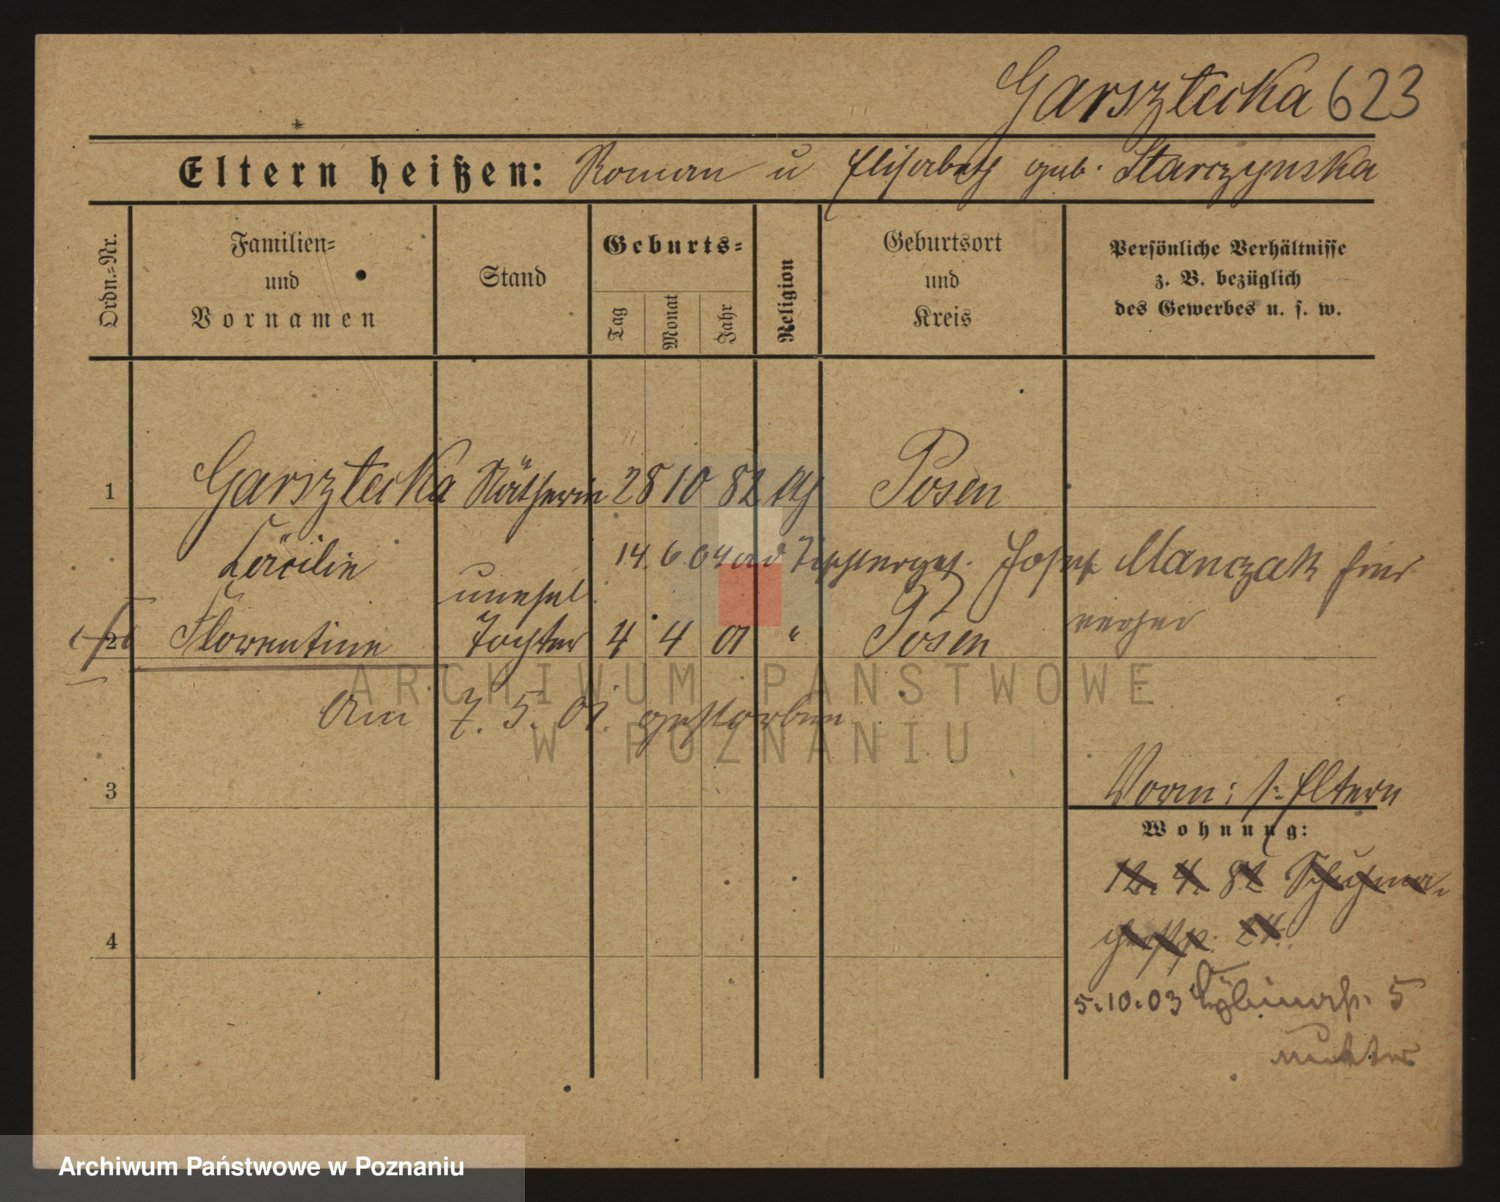 Garsztecka 623
Eltern heißen: Roman u Elisabeth geb. Starczynska
Ordn.-Nr.
Familien-
und
Vornamen
Stand
Geburts-
Tag
Monat
Jahr
Religion
Geburtsort
und
Kreis
Persönliche Verhältnisse
z. B. bezüglich
des Gewerbes u. s. w.
1 Garsztecka Nätherin 28 10 82 kth Posen
Cäcilie
14. 6. 04 Tischlerges. Josef Manczak hier
unehel.
2 Florentine Tochter 4 4 01 " Posen
Am 7. 5. 01. gestorben
ARCHIWUM PAŃSTWOWE
W POZNANIU
3
Vorm: s. Eltern
Wohnung:
12. 4. 82 Schuhma-
cherstr. 24.
4
5.10.03 5
Mutter
Archiwum Państwowe w Poznaniu